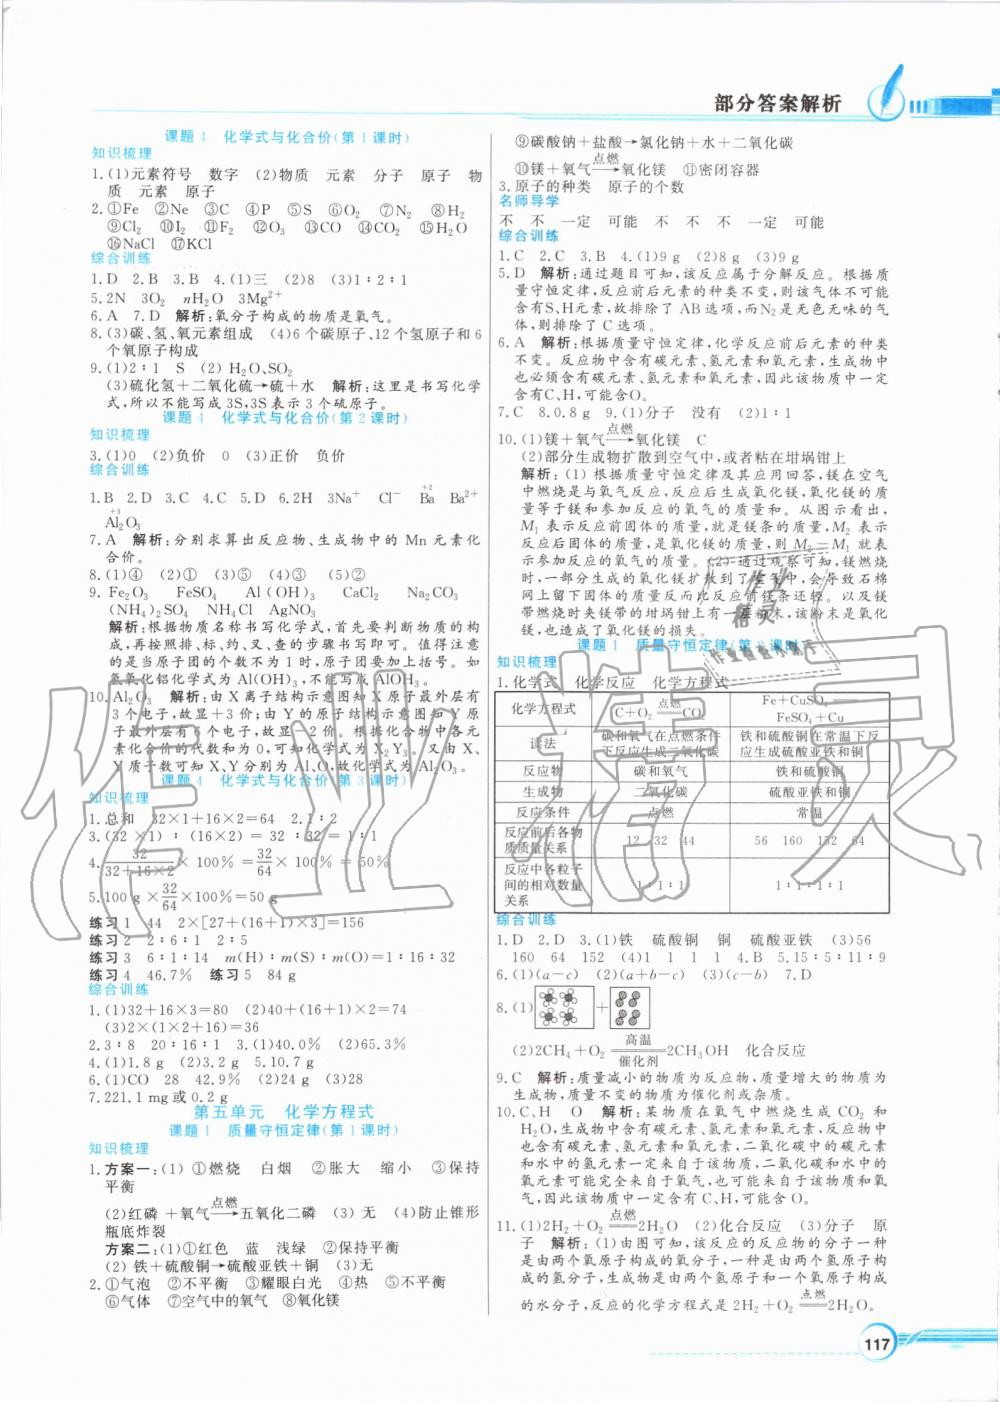 部分答案解析
课题4 化学式与化合价(第1课时)
知识梳理
1.(1)元素符号 数字 (2)物质 元素 分子 原子 物
质 元素 原子
2.①Fe ②Ne ③C ④P ⑤S ⑥O₂ ⑦N₂ ⑧H₂
⑨Cl₂ ⑩I₂ ⑪F₂ ⑫O₃ ⑬CO ⑭CO₂ ⑮H₂O
⑯NaCl ⑰KCl
综合训练
1.D 2.B 3.B 4.(1)三 (2)8 (3)1∶2∶1
5.2N 3O₂ nH₂O 3Mg²⁺
6.A 7.D 解析:氧分子构成的物质是氧气。
8.(3)碳、氢、氧元素组成 (4)6个碳原子、12个氢原子和6
个氧原子构成
9.(1)2∶1 S (2)H₂O、SO₂
(3)硫化氢+二氧化硫→硫+水 解析:这里是书写化学
式,所以不能写成3S,3S表示3个硫原子。
课题4 化学式与化合价(第2课时)
知识梳理
3.(1)0 (2)负价 0 (3)正价 负价
综合训练
1.B 2.D 3.C 4.C 5.D 6.2H 3Na⁺ Cl⁻ Ba(+2) Ba²⁺
Al₂O₃(+3)
7.A 解析:分别求算出反应物、生成物中的Mn元素化
合价。
8.(1)④ (2)① (3)⑤ (4)③ (5)②
9.Fe₂O₃ FeSO₄ Al(OH)₃ CaCl₂ Na₂CO₃
(NH₄)₂SO₄ NH₄Cl AgNO₃
解析:根据物质名称书写化学式,首先要判断物质的构
成,再按照排、标、约、叉、查的步骤来书写。值得注意
的是当原子团的个数不为1时,原子团要加上括号。如
氢氧化铝化学式为Al(OH)₃,不能写成AlOH₃。
10.Al₂O₃ 解析:由X离子结构示意图知X原子最外层有
3个电子,故显+3价;由Y的原子结构示意图知Y原子
最外层有6个电子,故显-2价。根据化合物中各元
素化合价的代数和为0,可知化学式为X₂Y₃。又由X、
Y质子数可知X、Y分别为Al、O,故化学式为Al₂O₃。
课题4 化学式与化合价(第3课时)
知识梳理
1.总和 32×1+16×2=64 2.1∶2
3.(32×1)∶(16×2)=32∶32=1∶1
4.32/(32+16×2)×100%=32/64×100%=50%
5.100 g×32/64×100%=50 g
练习1 44 2×[27+(16+1)×3]=156
练习2 2∶6∶1 2∶5
练习3 6∶1∶14 m(H)∶m(S)∶m(O)=1∶16∶32
练习4 46.7% 练习5 84 g
综合训练
1.(1)32+16×3=80 (2)40+(16+1)×2=74
(3)2×(1×2+16)=36
2.3∶8 20∶16∶1 3.(1)40.0% (2)65.3%
4.(1)1.8 g (2)3.2 g 5.10.7 g
6.(1)CO 28 42.9% (2)24 g (3)28
7.221.1 mg或0.2 g
第五单元 化学方程式
课题1 质量守恒定律(第1课时)
知识梳理
1.方案一:(1)①燃烧 白烟 ②胀大 缩小 ③保持
平衡
(2)红磷+氧气—点燃→五氧化二磷 (3)无 (4)防止锥形
瓶底炸裂
方案二:(1)①红色 蓝 浅绿 ②保持平衡
(2)铁+硫酸铜→硫酸亚铁+铜 (3)无
2.①气泡 ②不平衡 ③耀眼白光 ④热 ⑤不平衡
⑥气体 ⑦空气中的氧气 ⑧氧化镁
⑨碳酸钠+盐酸→氯化钠+水+二氧化碳
⑩镁+氧气—点燃→氧化镁 ⑪密闭容器
3.原子的种类 原子的个数
名师导学
不 不 一定 可能 不 不 不 一定 可能
综合训练
1.C 2.C 3.B 4.(1)9 g (2)8 g (3)9 g
5.D 解析:通过题目可知,该反应属于分解反应。根据质
量守恒定律,反应前后元素的种类不变,则该气体不可能
含有S、H元素,故排除了AB选项,而N₂是无色无味的气
体,则排除了C选项。
6.A 解析:根据质量守恒定律,化学反应前后元素的种类
不变。反应物中含有碳元素、氢元素和氧元素,生成物中
也必须含有碳元素、氢元素和氧元素,因此该物质中一定
含有C、H,可能含O。
7.C 8.0.8 g 9.(1)分子 没有 (2)1∶1
10.(1)镁+氧气—点燃→氧化镁 C
(2)部分生成物扩散到空气中,或者粘在坩埚钳上
解析:(1)根据质量守恒定律及其应用回答,镁在空气
中燃烧是与氧气反应,反应后生成氧化镁,氧化镁的质
量等于镁和参加反应的氧气的质量和。从图示看出,
M₁表示反应前固体的质量,就是镁条的质量,M₂表示
反应后固体的质量,是氧化镁的质量,则M₂-M₁就表
示参加反应的氧气的质量。(2)通过观察可知,镁燃烧
时,一部分生成的氧化镁扩散到了空气中,会导致石棉
网上留下固体的质量反而比反应前镁条还轻。以及镁
带燃烧时夹镁带的坩埚钳上有一层粉末,该粉末是氧化
镁,也造成了氧化镁的损失。
课题1 质量守恒定律(第2课时)
知识梳理
1.化学式 化学反应 化学方程式
化学方程式 C+O₂═点燃═CO₂ Fe+CuSO₄═
FeSO₄+Cu
读法 碳和氧气在点燃条件 铁和硫酸铜在常温下反
下反应生成二氧化碳 应生成硫酸亚铁和铜
反应物 碳和氧气 铁和硫酸铜
生成物 二氧化碳 硫酸亚铁和铜
反应条件 点燃 常温
反应前后各物
质质量关系 12 32 44 56 160 152 64
反应中各粒子
间的相对数量 1∶1∶1 1∶1∶1∶1
关系
综合训练
1.D 2.D 3.(1)铁 硫酸铜 铜 硫酸亚铁 (3)56
160 152 64 (4)1 1 1 1 4.B 5.15∶5∶11∶9
6.(1)(a-c) (2)(a+b-c) (3)(c-b) 7.D
8.(1) +
(2)2CH₄+O₂═高温 催化剂═2CH₃OH 化合反应
9.C 解析:质量减小的物质为反应物,质量增大的物质为
生成物,质量不变的物质为催化剂或杂质。
10.C、H O 解析:某物质在氧气中燃烧生成CO₂和
H₂O,生成物中含有碳元素、氢元素和氧元素,反应物中
也含有碳元素、氢元素和氧元素,二氧化碳中的碳元素
和水中的氢元素一定来自于该物质,二氧化碳和水中的
氧元素可能完全来自于氧气,也可能部分来自于氧气,
因此该物质中一定含有C、H,可能含O。
11.(1)2H₂+O₂═点燃═2H₂O (2)化合反应 (3)分子 原
子 解析:(1)由图可知,该反应的反应物的分子一种
是由两个氧原子构成的氧分子,一种是由两个氢原子构
成的氢分子,生成物是由两个氢原子和一个氧原子构成
的水分子,反应的化学方程式是2H₂+O₂═点燃═2H₂O。
117
作业精灵